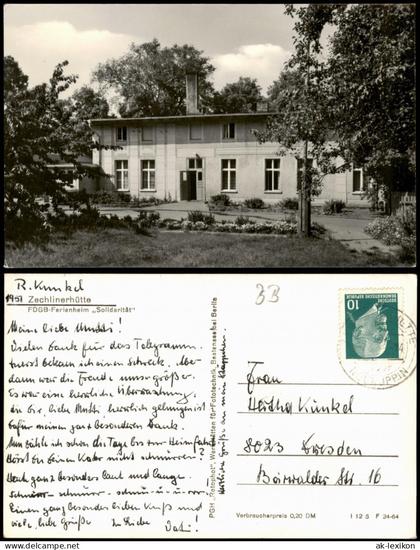 R. Kunkel
Zechlinerhütte
FDGB-Ferienheim „Solidarität"
Meine liebe Mutti!
Vielen Dank für das Telegramm.
Zuerst bekam ich einen Schreck. Aber
dann war die Freude umso größer.
Es war eine herrliche Überraschung,
die Dir, liebe Mutti herrlich gelungen ist
dafür meinen ganz besonderen Dank.
Nun zähle ich schon die Tage bis zur Heimfahrt
Hörst Du Deinen Kater nicht schnurren?
Heut ganz besonders laut und lange.
Schnurr - schnurr - schnu-u-u-rr!
Einen ganz besonders lieben Kuß und
viele liebe Grüße In Liebe
PGH „Rotophot", Werkstätten für Fototechnik, Bestensee bei Berlin
3B
10
DEUTSCHE DEMOKRATISCHE REPUBLIK
Frau
Hertha Kunkel
8023 Dresden
Bärwalder Str. 16
Verbraucherpreis 0,20 DM
I 12 5 F 34-64
© ak-lexikon
www.ak-lexikon.de